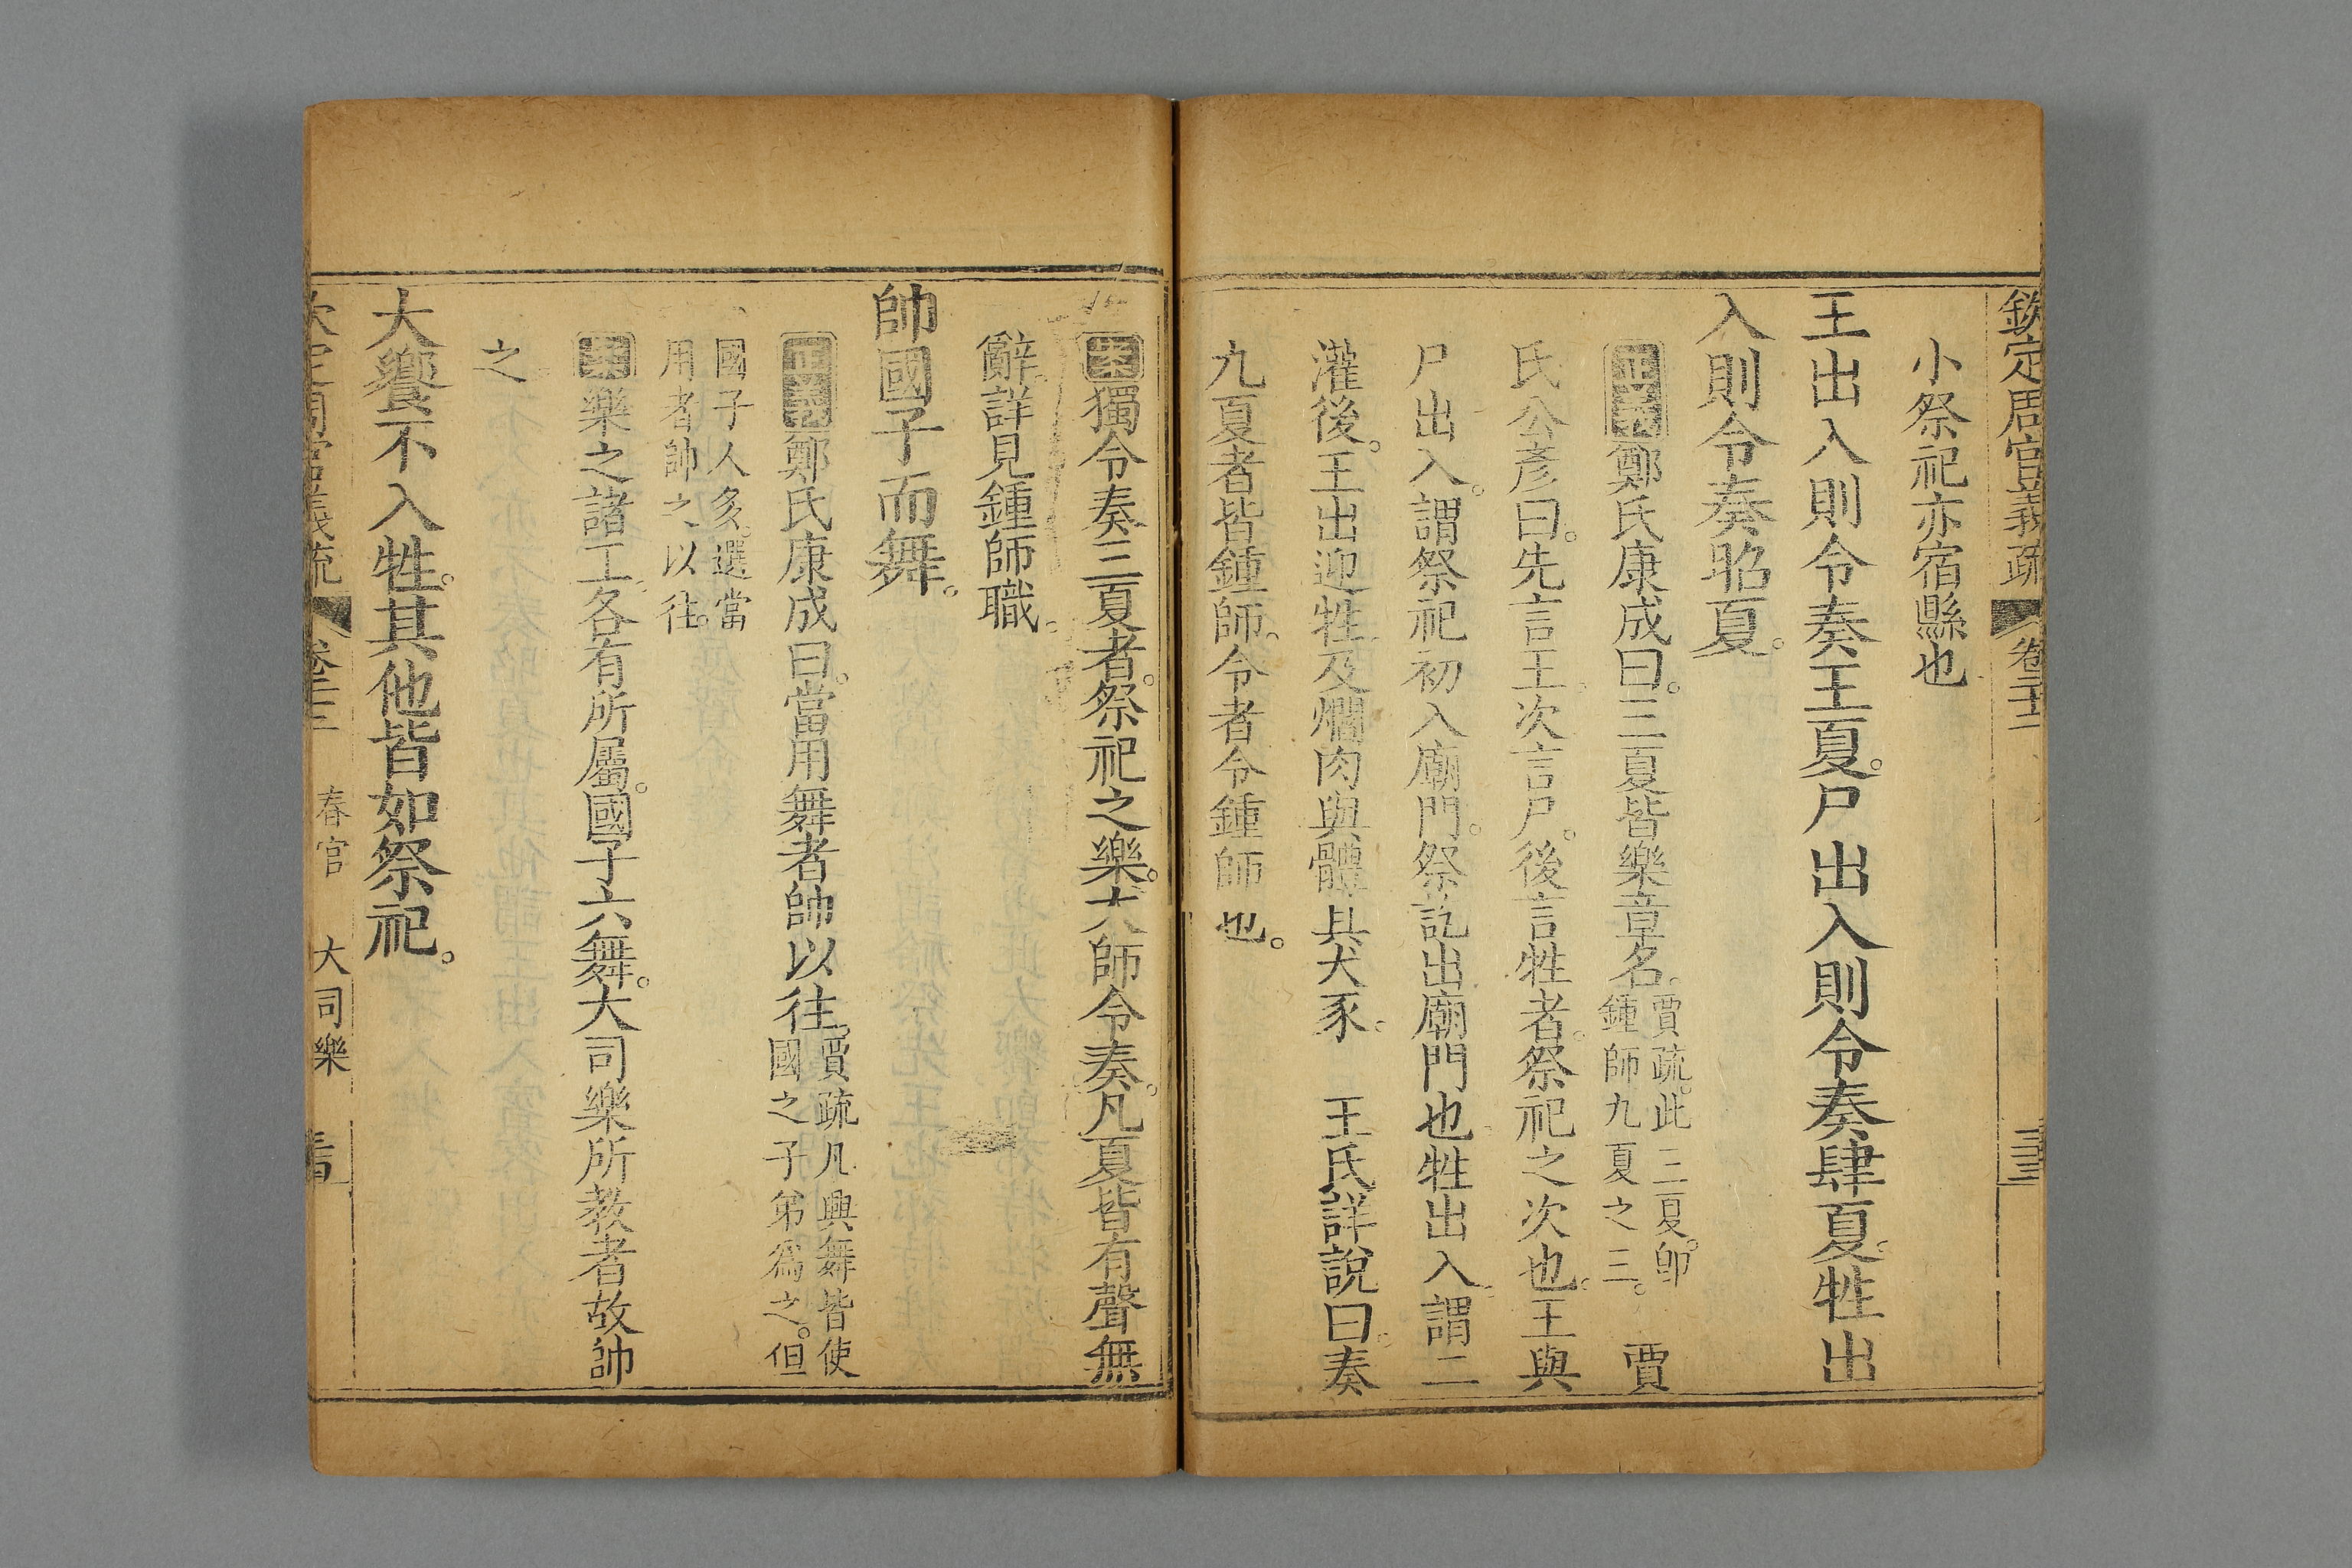 欽定周官義疏 卷二十二 三三
小祭祀亦宿縣也
王出入則令奏王夏。尸出入則令奏肆夏。牲出
入則令奏昭夏。
正義鄭氏康成曰。三夏皆樂章名。賈疏。此三夏。卽鍾師九夏之三。 賈
氏公彥曰。先言王次言尸。後言牲者。祭祀之次也。王與
尸出入。謂祭祀初入廟門。祭訖出廟門也。牲出入。謂二
灌後。王出迎牲。及爓肉與體其犬豕。 王氏詳說曰。奏
九夏者皆鍾師。令者令鍾師也。
案獨令奏三夏者。祭祀之樂。大師令奏。凡夏皆有聲無
辭。詳見鍾師職。
帥國子而舞。
正義鄭氏康成曰。當用舞者帥以往。賈疏凡興舞皆使國之子弟爲之。但
國子人多。選當用者帥之以往。
案樂之諸工。各有所屬。國子六舞。大司樂所教者故帥
之。
大饗不入牲。其他皆如祭祀。
欽定周官義疏 卷二十二 春官 大司樂